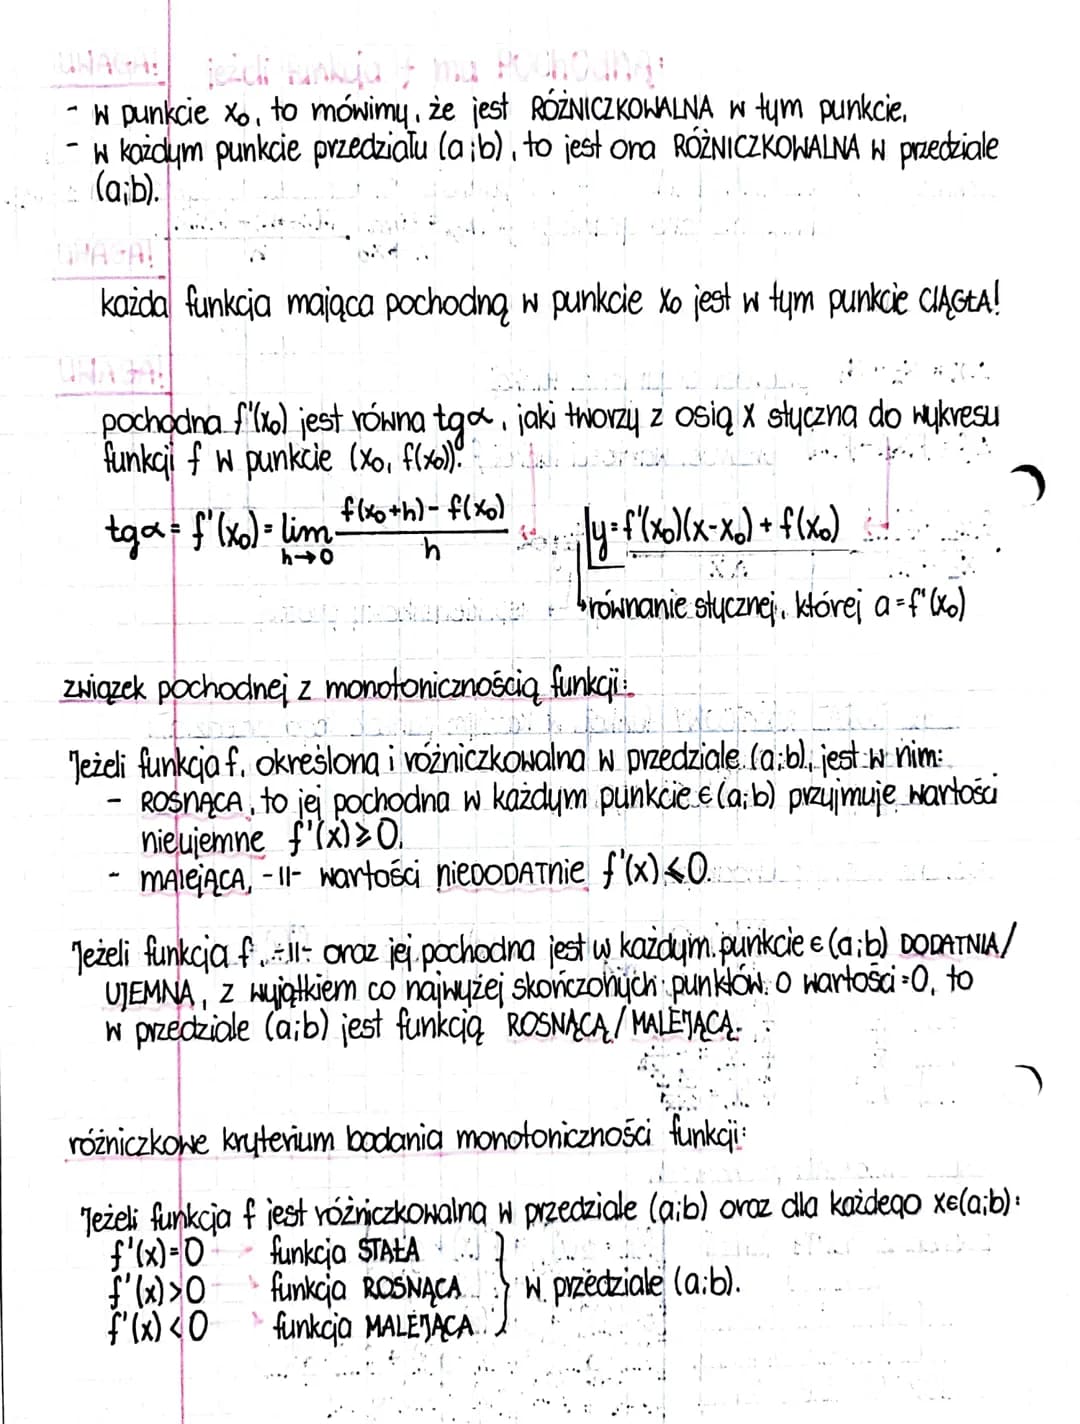 UWAGA! jeżeli funkcja f ma POCHODNĄ:
- w punkcie x₀, to mówimy, że jest RÓŻNICZKOWALNA w tym punkcie,
- w każdym punkcie przedziału (a;b), to jest ona RÓŻNICZKOWALNA w przedziale
(a;b).
UWAGA!
każda funkcja mająca pochodną w punkcie x₀ jest w tym punkcie CIĄGŁA!
UWAGA!
pochodna f'(x₀) jest równa tgα, jaki tworzy z osią x styczna do wykresu
funkcji f w punkcie (x₀, f(x₀)).
tgα = f'(x₀) = lim h→0 f(x₀+h) - f(x₀) / h
y = f'(x₀)(x-x₀) + f(x₀)
↳ równanie stycznej, której a = f'(x₀)
związek pochodnej z monotonicznością funkcji:
Jeżeli funkcja f, określona i różniczkowalna w przedziale (a;b), jest w nim:
- ROSNĄCA, to jej pochodna w każdym punkcie ∈ (a;b) przyjmuje wartości
nieujemne f'(x) ⩾ 0.
- MALEJĄCA, -||- wartości nieDODATnie f'(x) ⩽ 0.
Jeżeli funkcja f, -||- oraz jej pochodna jest w każdym punkcie ∈ (a;b) DODATNIA/
UJEMNA, z wyjątkiem co najwyżej skończonych punktów o wartości = 0, to
w przedziale (a;b) jest funkcją ROSNĄCĄ / MALEJĄCĄ.
różniczkowe kryterium badania monotoniczności funkcji:
Jeżeli funkcja f jest różniczkowalna w przedziale (a;b) oraz dla każdego x∈(a;b):
f'(x) = 0 funkcja STAŁA
f'(x) > 0 funkcja ROSNĄCA } w przedziale (a;b).
f'(x) < 0 funkcja MALEJĄCA